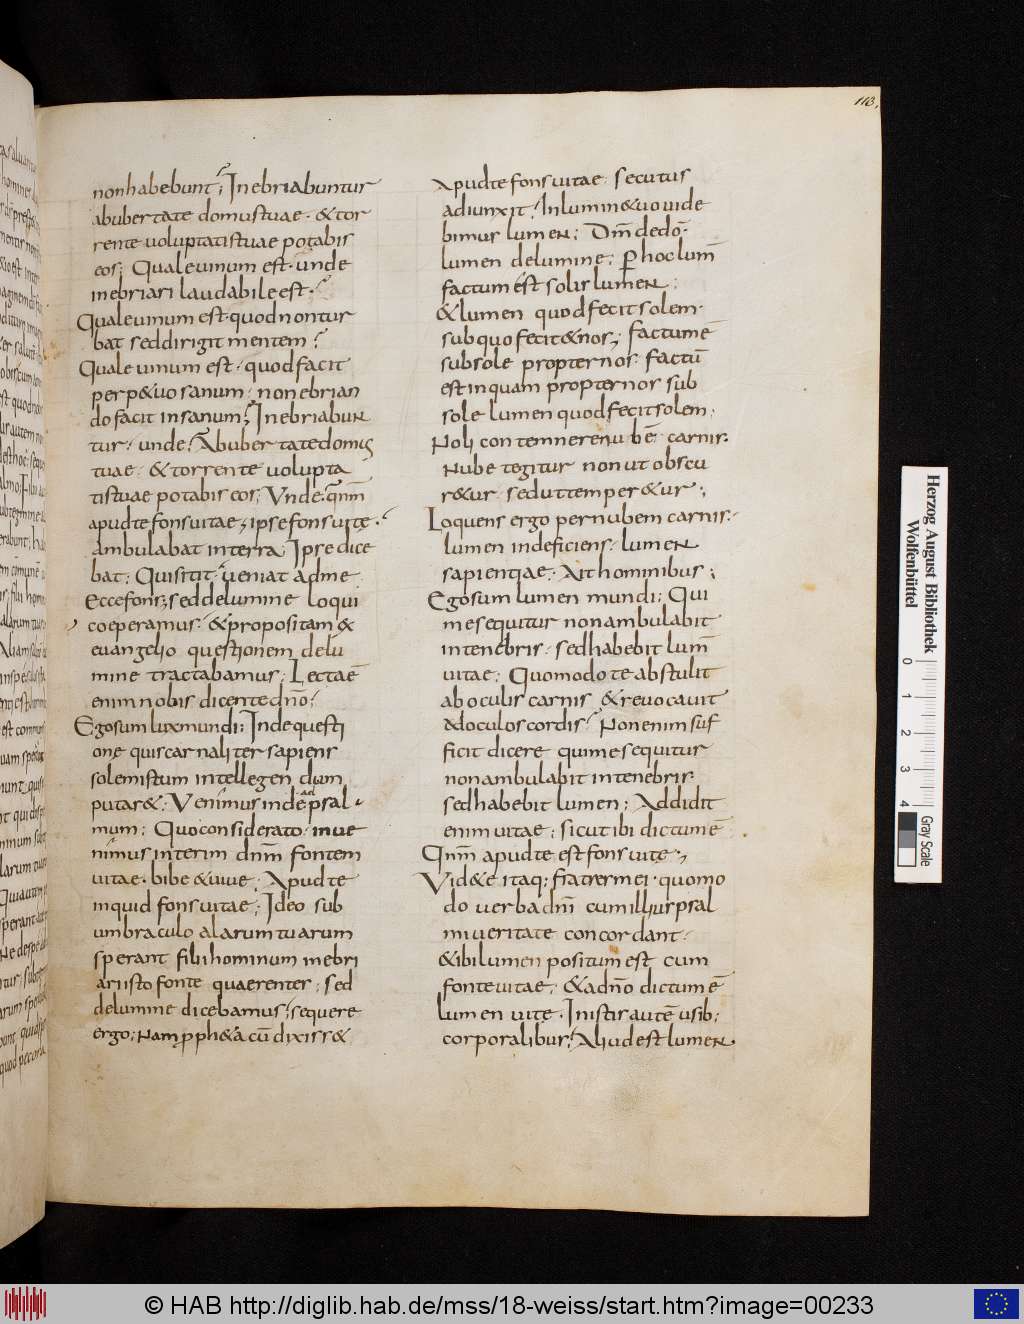 118,
nonhabebunt; Inebriabuntur
abubertate domustuae · &tor
rente uoluptatistuae potabis
eos; Qualeuinum est · unde
inebriari laudabileest?
Qualeuinum est · quodnontur
bat seddirigit mentem?
Quale uinum est · quodfacit
perp&uo sanum · nonebrian
dofacit insanum? InebriabuN
tur · unde? Abubertatedomus
tuae · &torrente uolupta
tistuae potabis eos; Vnde · qnm̄
apudtefonsuitae; ipsefonsuite ·
ambulabat interra Ipse dice
bat; Quisitit ueniat adme
Eccefons; seddelumine loqui
coeperamus · &propositam &
euangelio questionem delu
mine tractabamus; Lectaē
enim nobis dicentedn̄o ·
Egosumluxmundi; Indequesti
one quiscarnaliter sapiens
solemistum intellegendum
putar&; Venimusinde adpsal
mum; Quoconsiderato · inue
nimus interim dn̄m fontem
uitae · bibe &uiue · Apudte
inquid fonsuitae; Ideo sub
umbraculo alarumtuarum
sperant filiihominum inebri
ariistofonte quaerenter; sed
delumine dicebamus; sequere
ergo; Nam pph&a cū dixiss&
Apudtefonsuitae · secutus
adiunxit; Inlumin&uouide
bimus lumeN; Dm̄dedō ·
lumen delumine; Phoclum̄
factumēst solislumeN;
&lumen quodfecitsolem ·
subquofecit&nos; factumē
subsole propternos · factū
estinquam propternos sub
sole lumenquodfecitsolem;
Noli contemnerenubē carnis ·
Nube tegitur nonut obscu
r&ur · sedutttemper&ur;
Loquens ergo pernubem carnis ·
lumen indeficiens · lumeN
sapientiae · Aithominibus;
Egosumlumen mundi; Qui
mesequitur nonambulabit
intenebris · sedhabebit lum̄
uitae; Quomodoteabstulit
aboculis carnis &reuocauit
adoculoscordis; Nonenimsuf
ficit dicere quimesequitur
nonambulabit intenebris ·
sedhabebit lumen; Addidit
enimuitae; sicutibi dictumē
Qnm̄ apudte estfonsuite;
Vid&e itaq; fratresmei · quomo
do uerbadn̄i cumilliuspsal
miueritate concordant ·
&ibilumen positumest cum
fonteuitae; &adn̄o dictumē
lumen uite · Inistis autē usib;
corporalibus; AliudestlumeN
Herzog August Bibliothek
Wolfenbüttel
0 1 2 3 4
Gray Scale
© HAB http://diglib.hab.de/mss/18-weiss/start.htm?image=00233